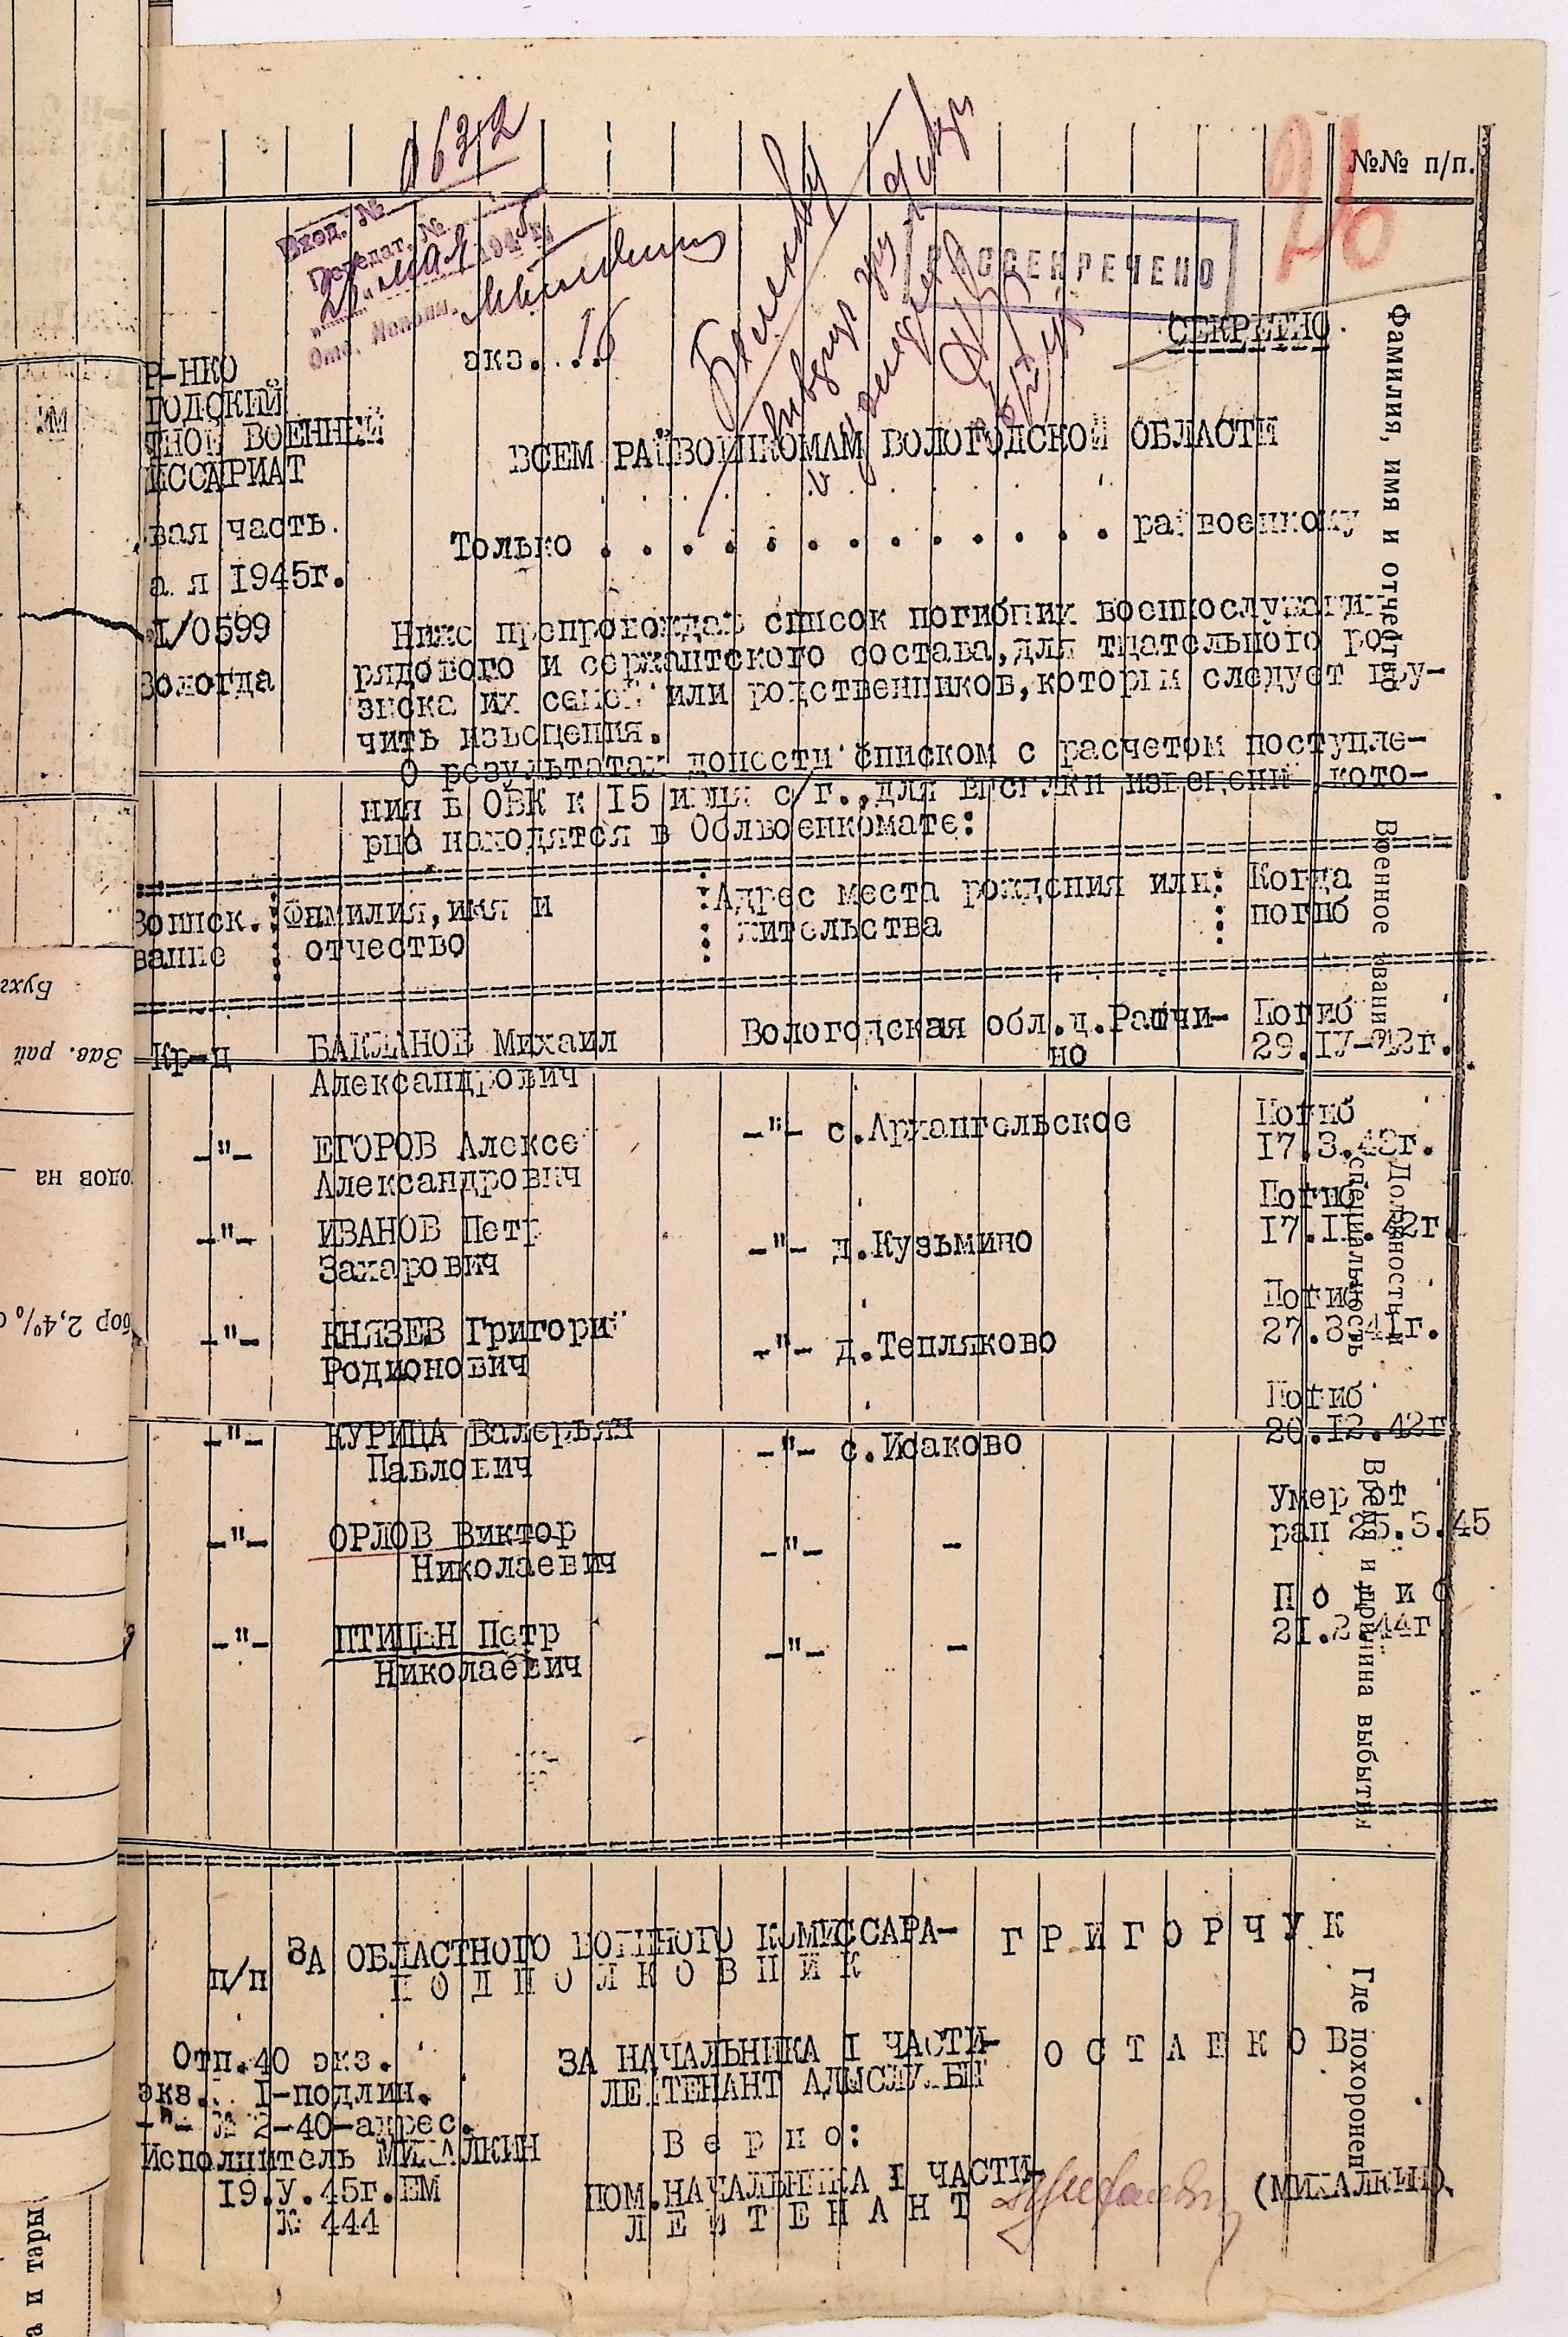 №№ п/п.
Фамилия, имя и отчество
Военное звание
Должность и
специальность
Время и причина выбытия
Где похоронен
0632
26
Вход. №
Передат. №
21 мая 1945г.
РАССЕКРЕЧЕНО
СЕКРЕТНО.
экз...
Р-НКО
ГОДСКИЙ
ТНОЙ ВОЕННЫЙ
ИССАРИАТ
вая часть.
а я 1945г.
I/0599
Вологда
ВСЕМ РАЙВОЕНКОМАМ ВОЛОГОДСКОЙ ОБЛАСТИ
Только . . . . . . . . . . . . . райвоенкому
Ниже препровождаю список погибших военнослужащих
рядового и сержантского состава, для тщательного ро-
зыска их семей или родственников, которым следует вру-
чить извещения.
О результатах донести списком с расчетом поступле-
ния в ОВК к 15 июля с/г., для высылки извещений кото-
рые находятся в Облвоенкомате:
Воинск. : Фамилия, имя и : Адрес места рождения или : Когда
вание : отчество : жительства : погиб
Кр-ц БАКЛАНОВ Михаил Вологодская обл. д. Рапчи- Погиб
но 29.IУ-43г.
Александрович
-"- ЕГОРОВ Алексе -"- с.Архангельское Погиб
Александрович 17.3.43г.
-"- ИВАНОВ Петр -"- д.Кузьмино Погиб
Захарович 17.II.42г
-"- КНЯЗЕВ Григорий -"- д.Тепляково Погиб
Родионович 27.3.41г.
-"- КУРИЦА Валерьян -"- с.Исаково Погиб
Павлович 20.12.42г
-"- ОРЛОВ Виктор -"- - Умер от
Николаевич ран 25.3.45
-"- ПТИЦЫН Петр -"- - П о г и б
Николаевич 21.2.44г
п/п ЗА ОБЛАСТНОГО ВОЕННОГО КОМИССАРА- Г Р И Г О Р Ч У К
П О Д П О Л К О В Н И К
Отп.40 экз. ЗА НАЧАЛЬНИКА I ЧАСТИ- О С Т А Ш К О В
экз. I-подлин. ЛЕЙТЕНАНТ АДМСЛУЖБЫ
-"- № 2-40-адрес.
Исполнитель МИХАЛКИН В е р н о:
19.У.45г.ЕМ ПОМ.НАЧАЛЬНИКА I ЧАСТИ- (МИХАЛКИН)
№ 444 Л Е Й Т Е Н А Н Т
им
Бухг
Зав. рай
одов на
бор 2,4%
а и тары